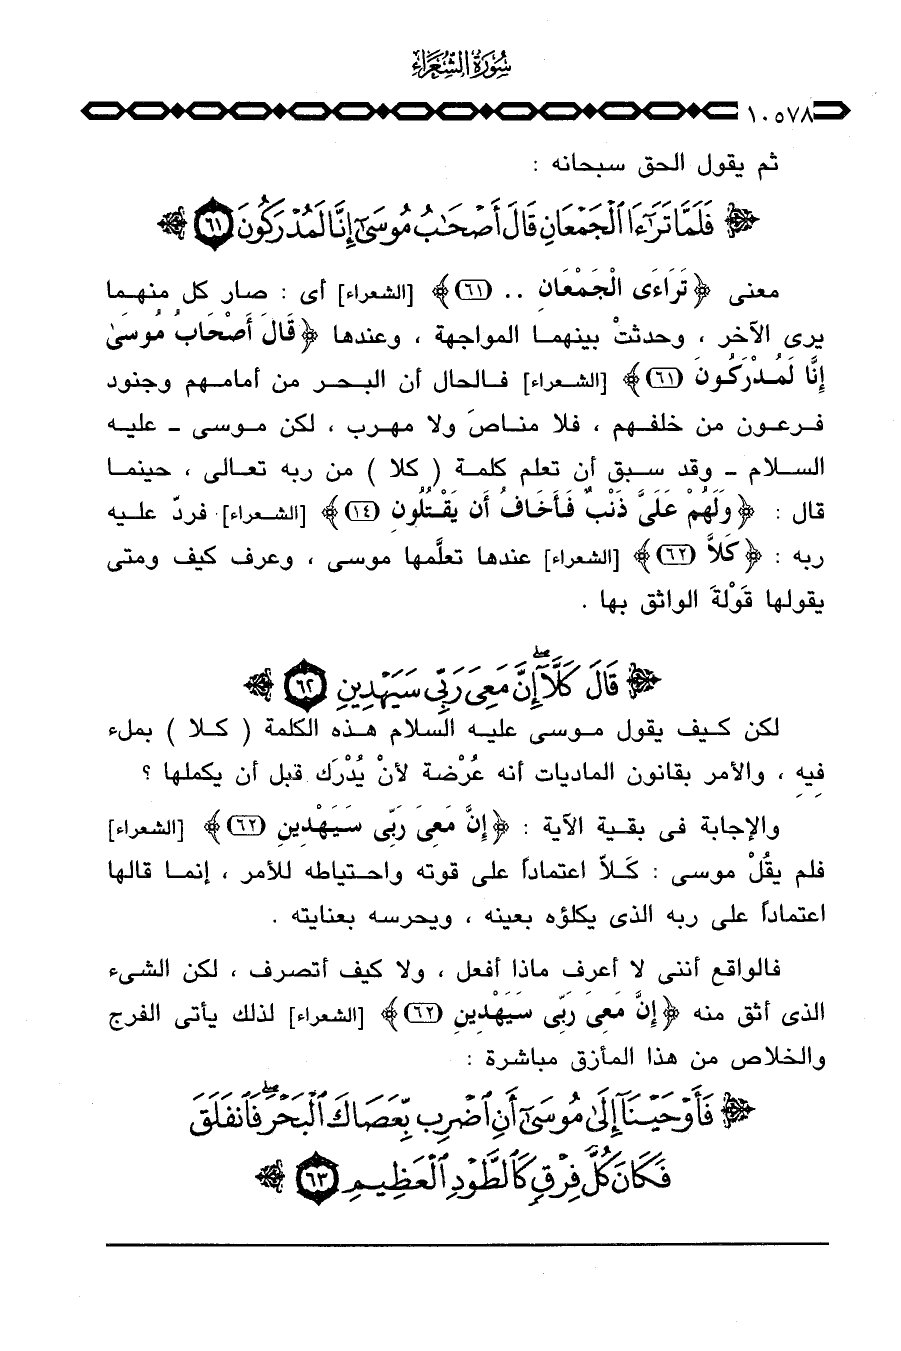 سُورَةُ الشُّعَرَاءِ
١٠٥٧٨
ثم يقول الحق سبحانه :
﴿ فَلَمَّا تَرَٰٓءَا ٱلْجَمْعَانِ قَالَ أَصْحَٰبُ مُوسَىٰٓ إِنَّا لَمُدْرَكُونَ ٦١ ﴾
معنى ﴿ تَرَاءَى الْجَمْعَانِ .. (٦١) ﴾ [الشعراء] أى : صار كل منهما
يرى الآخر ، وحدثتْ بينهما المواجهة ، وعندها ﴿ قَالَ أَصْحَابُ مُوسَىٰ
إِنَّا لَمُدْرَكُونَ (٦١) ﴾ [الشعراء] فالحال أن البحر من أمامهم وجنود
فرعون من خلفهم ، فلا مناصَ ولا مهرب ، لكن موسى - عليه
السلام - وقد سبق أن تعلم كلمة ( كلا ) من ربه تعالى ، حينما
قال : ﴿ وَلَهُمْ عَلَىَّ ذَنْبٌ فَأَخَافُ أَن يَقْتُلُونِ (١٤) ﴾ [الشعراء] فردّ عليه
ربه : ﴿ كَلاَّ (٦٢) ﴾ [الشعراء] عندها تعلَّمها موسى ، وعرف كيف ومتى
يقولها قَوْلةَ الواثق بها .
﴿ قَالَ كَلَّآ ۖ إِنَّ مَعِىَ رَبِّى سَيَهْدِينِ ٦٢ ﴾
لكن كيف يقول موسى عليه السلام هذه الكلمة ( كلا ) بملء
فيه ، والأمر بقانون الماديات أنه عُرْضة لأنْ يُدْرَك قبل أن يكملها ؟
والإجابة فى بقية الآية : ﴿ إِنَّ مَعِىَ رَبِّى سَيَهْدِينِ (٦٢) ﴾ [الشعراء]
فلم يقُلْ موسى : كَلاَّ اعتماداً على قوته واحتياطه للأمر ، إنما قالها
اعتماداً على ربه الذى يكلؤه بعينه ، ويحرسه بعنايته .
فالواقع أننى لا أعرف ماذا أفعل ، ولا كيف أتصرف ، لكن الشىء
الذى أثق منه ﴿ إِنَّ مَعِىَ رَبِّى سَيَهْدِينِ (٦٢) ﴾ [الشعراء] لذلك يأتى الفرج
والخلاص من هذا المأزق مباشرة :
﴿ فَأَوْحَيْنَآ إِلَىٰ مُوسَىٰٓ أَنِ ٱضْرِب بِّعَصَاكَ ٱلْبَحْرَ ۖ فَٱنفَلَقَ
فَكَانَ كُلُّ فِرْقٍ كَٱلطَّوْدِ ٱلْعَظِيمِ ٦٣ ﴾